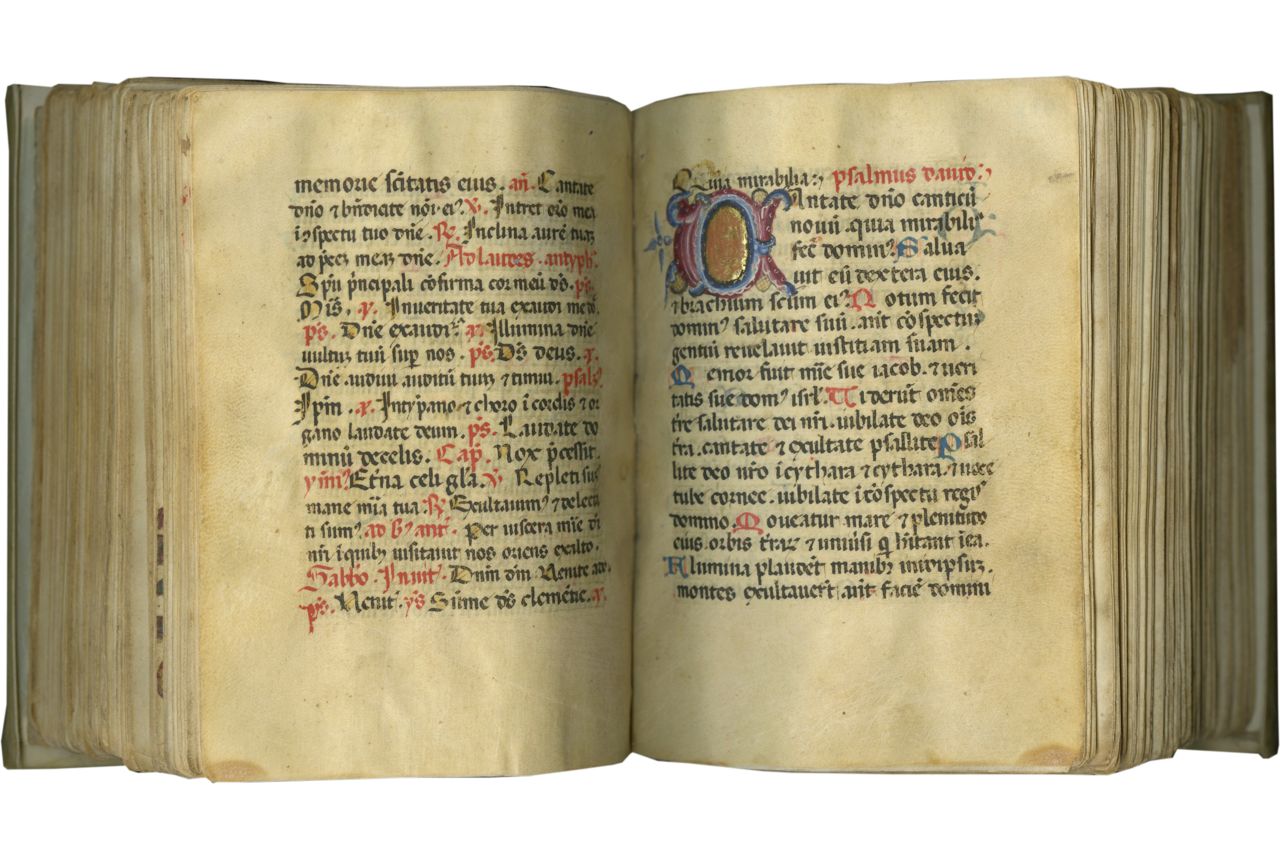 memorie scitatis eius. añ. Cantate
dño ⁊ bñdicate nõi ei⁹. v̄. Intret orõ mea
ĩ ɔspectu tuo dñe. R̄. Inclina aurẽ tuaꝫ
ad p̃ces meaꝫ dñe. Ad laudes. antyph̃.
Spũ p̃ncipali cõfirma cor meũ dš. pš.
Mis̃. a. In ueritate tua exaudi me dñe
pš. Dñe exaudi. a. Illumina dñe
uultuꝫ tuũ sup̱ nos. pš. Dš deus. a.
Dñe audiui auditũ tuuꝫ ⁊ timui. psalꝰ
Ip̃m. a. In tỹpano ⁊ choro ĩ cordis ⁊ or
gano laudate deum. pš. Laudate do
minũ de celis. Cap̃. Nox p̃cessit.
ym̃. Et̃na celi gl̃a. v̄. Repleti sum⁹
mane mĩa tua. R̄. Exultauim⁹ ⁊ delecta
ti sum⁹. ad b̃ ant̃. Per uiscera mĩe dĩ
nr̃i ĩ quib⁹ uisitauit nos oriens ex alto.
Sabb̃o. Inuit̃. Dñm dñm Uenite ado.
pš. Uenit̃. yš Sũme dš clemẽtie. a.
Quia mirabilia. psalmus dauid.
Antate dño canticũ
nouũ. quia mirabili⁹
fec̃ domin⁹. Salua
uit eũ dextera eius.
⁊ brachium scũm ei⁹. Notum fecit
domin⁹ salutare suũ. añt cõspectuꝫ
gentiũ reuelauit iustitiam suam.
Remor fuit mĩe sue iacob. ⁊ ueri
tatis sue dom⁹ isrl̃. Uiderũt om̃es
t̃re salutare dei nr̃i. iubilate deo oĩs
t̃ra. cantate ⁊ exultate ⁊ psallite. Psal
lite deo nr̃o ĩ cythara ⁊ cythara. ⁊ uoce
tube cornee. iubilate ĩ cõspectu regis
domino. Moueatur mare ⁊ plenitudo
eius. orbis t̃raꝫ ⁊ uniũsi q̃ hĩtant ĩ ea.
Flumina plaudẽt manib⁹ in id ipsuꝫ.
montes exultauer̃t añt faciẽ domini